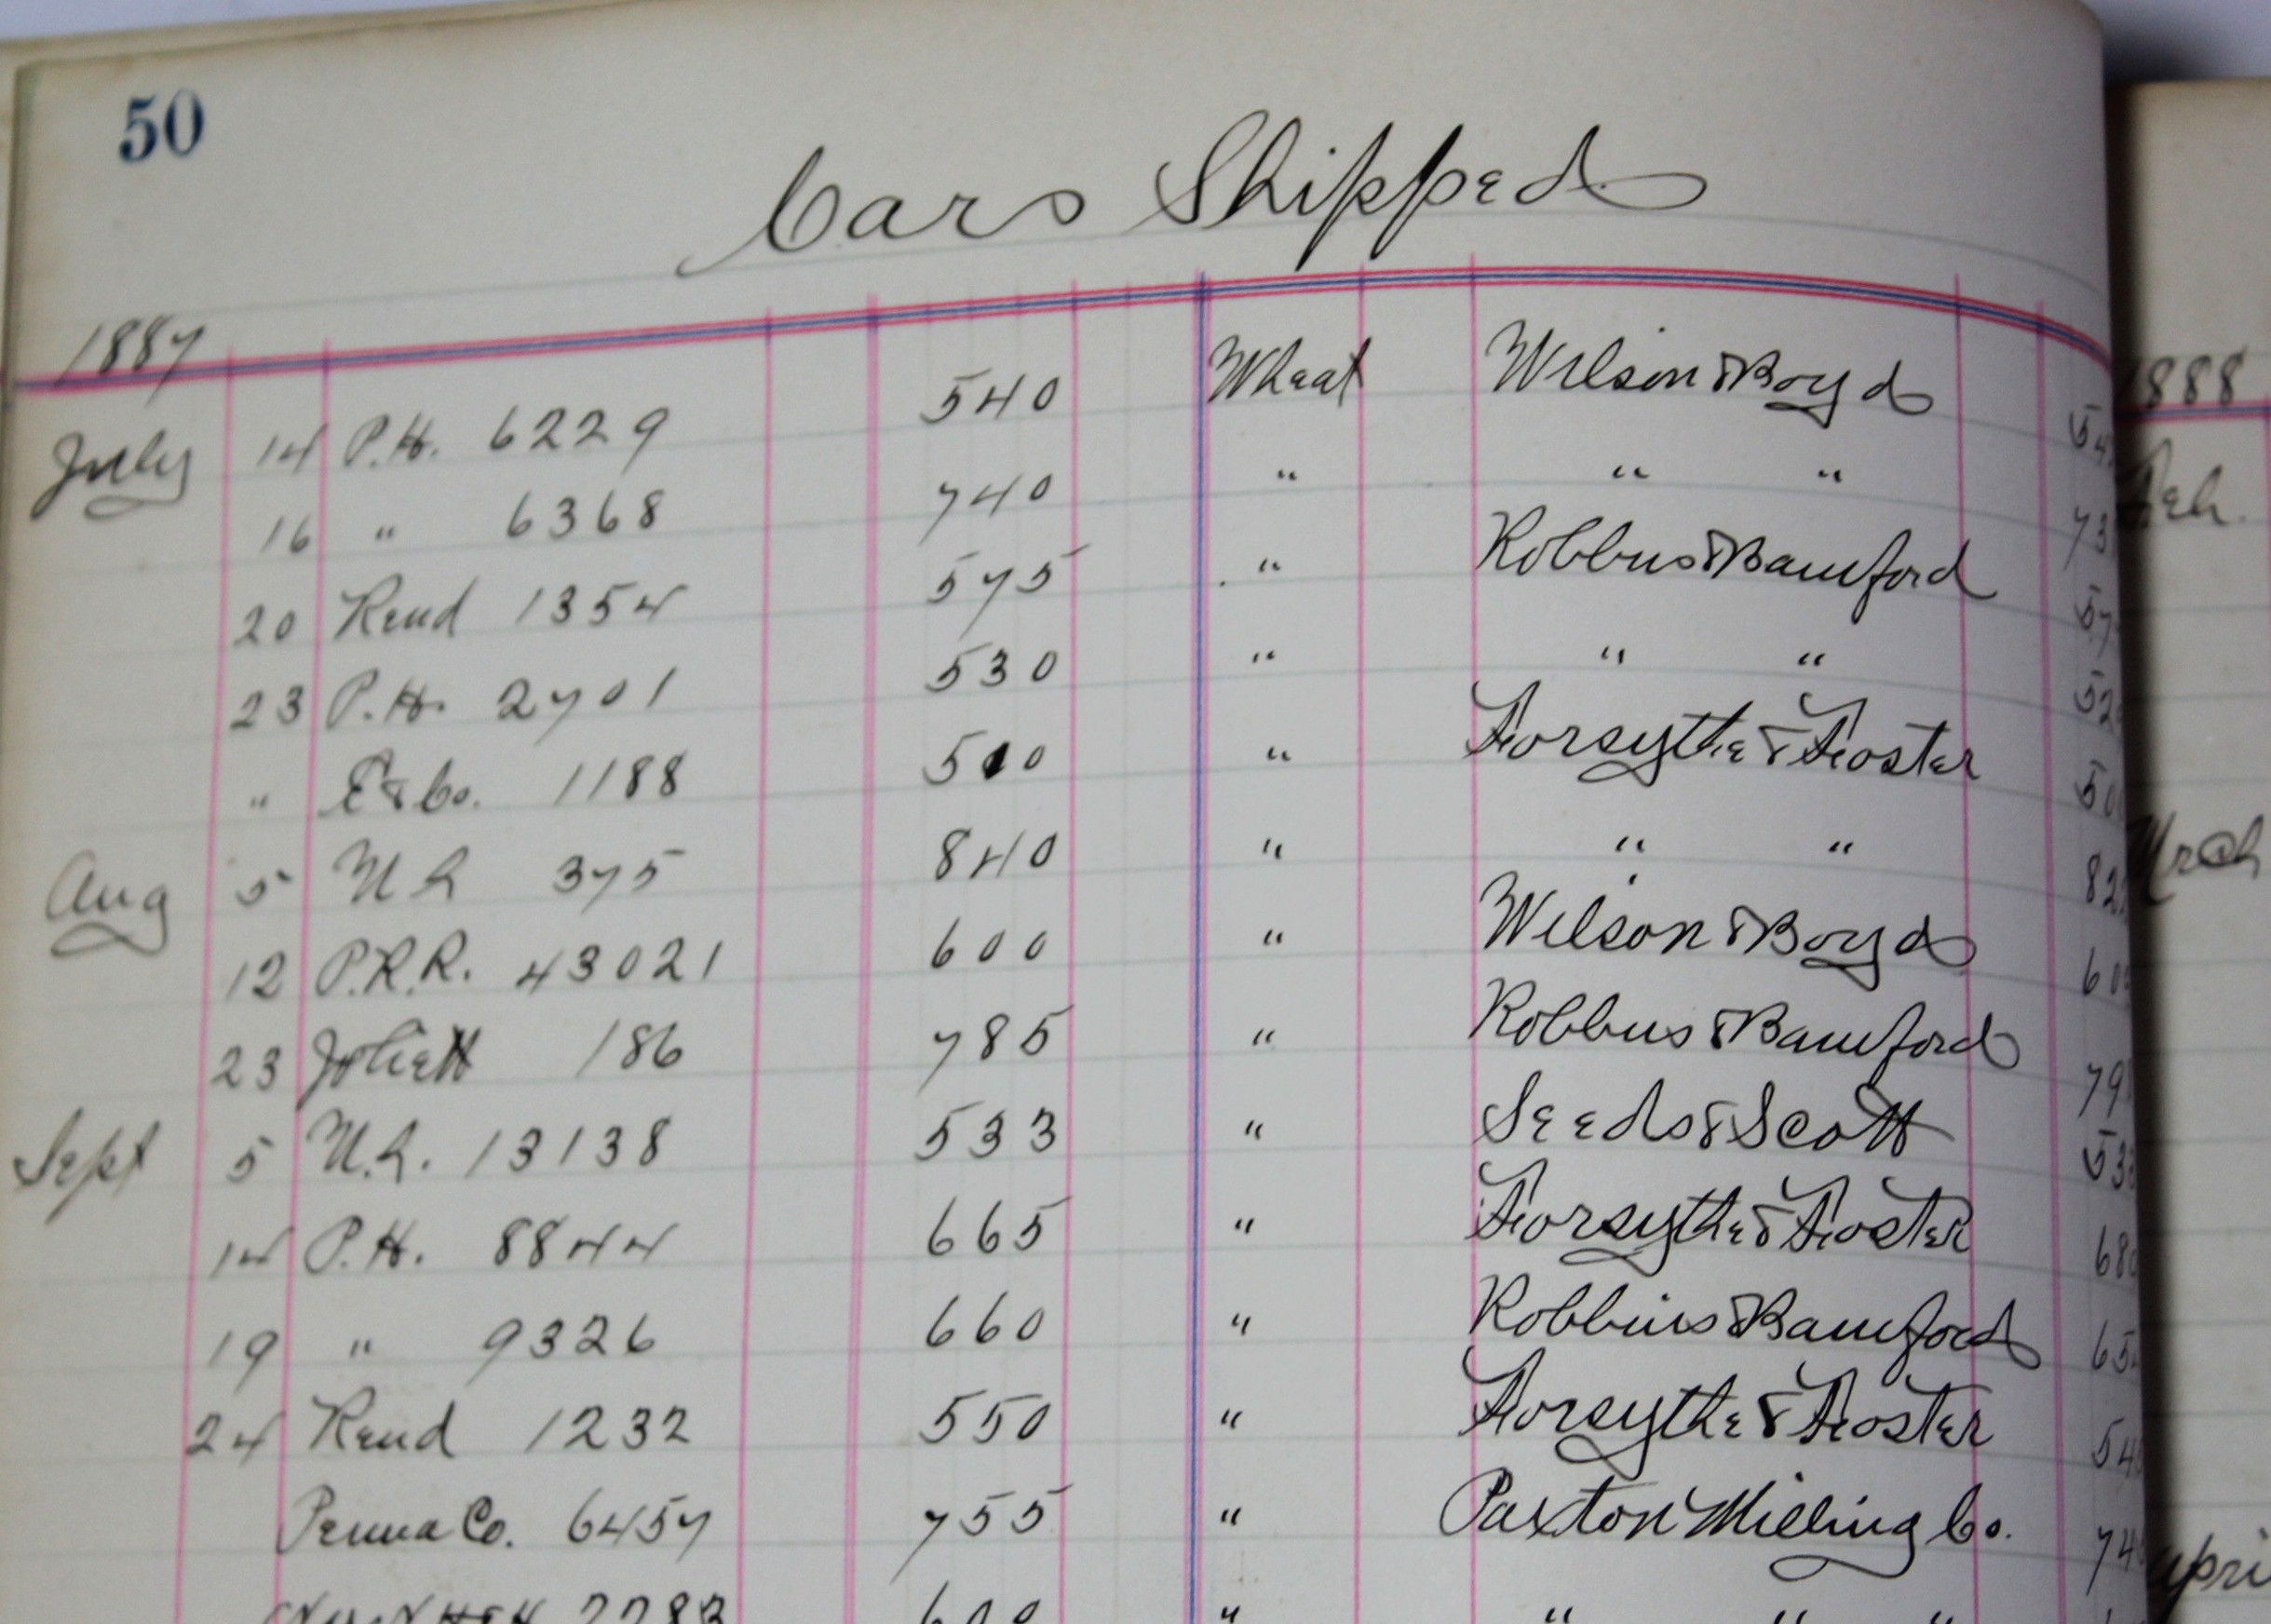 50
Cars Shipped
1887
July 14 P.H. 6229 540 Wheat Wilson & Boyd
16 " 6368 740 " " "
20 Rend 1354 575 " Robbins & Bamford
23 P.H. 2701 530 " " "
" E & Co. 1188 500 " Forsythe & Foster
Aug 5 U L 375 840 " " "
12 P.R.R. 43021 600 " Wilson & Boyd
23 Joliett 186 785 " Robbins & Bamford
Sept 5 U.L. 13138 533 " Seeds & Scott
14 P.H. 8844 665 " Forsythe & Foster
19 " 9326 660 " Robbins & Bamford
24 Rend 1232 550 " Forsythe & Foster
Penna Co. 6457 755 " Paxton Milling Co.
2283 600 " " " "
1888
Feb.
Mrch